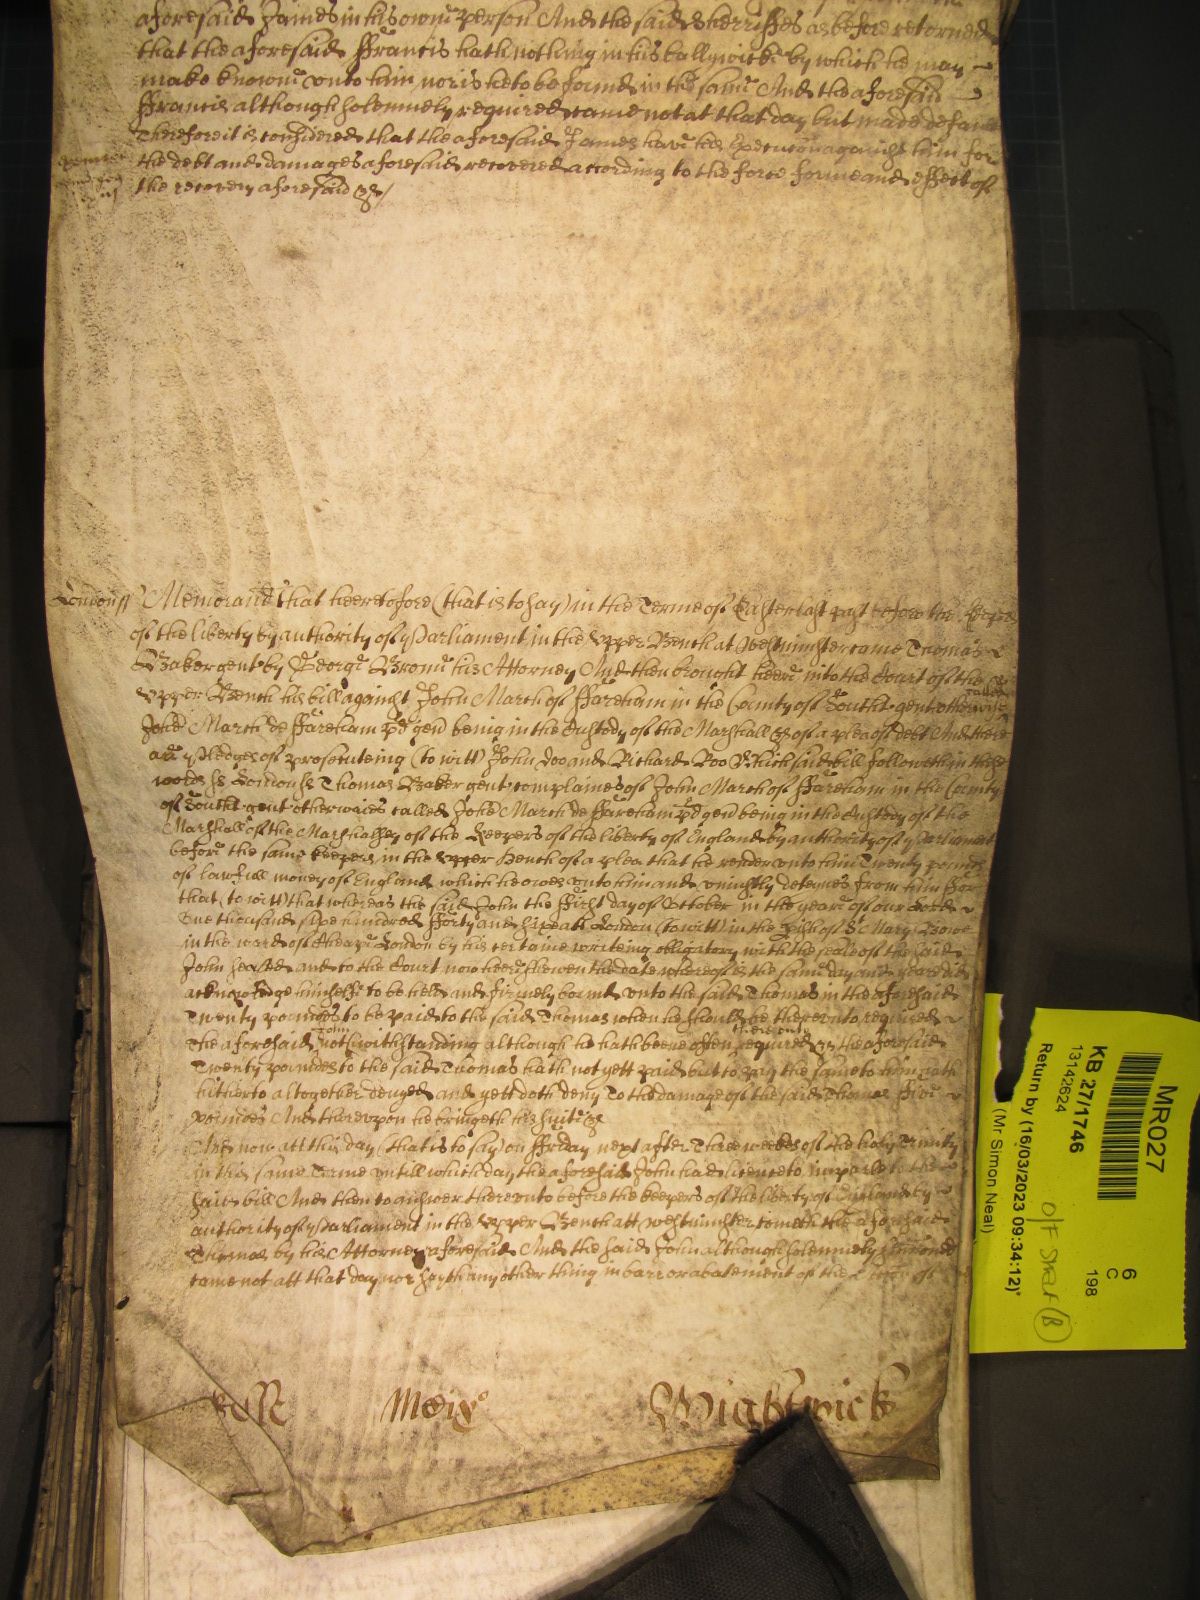 aforesaid James in his owne person And the said Sherriffes as before retorned
that the aforesaid Ffrancis hath nothing in his ballywicke by which he may
make knowne vnto him nor is he to be found in the same And the aforesaid
Ffrancis although solemnely required came not at that day but made default
Therefore it is considered that the aforesaid James have his Execucon against him for
the debt and damages aforesaid recovered according to the force forme and effect of
the recovery aforesaid &c/
London ss Memorand That heeretofore (that is to say) in the Terme of Easter last past before the keepers
of the liberty by authority of Parliament in the vpper Bench at Westminster came Thomas
Baker gent by George Browne his Attorney And then brought heere into the Court of the
vpper Bench his bill against John March of Ffareham in the County of Southt gent otherwise called
John March de Ffareham gen being in the Custody of the Marshall &c of a plea of debt And there
are pledges of prosecuteing (to witt) John Doo and Richard Roo Which said bill followeth in these
words ss London ss Thomas Baker gent complaines of John March of Ffareham in the County
of Southt gent otherwaies called John March de Ffareham gen being in the Custody of the
Marshall of the Marshalsey of the Keepers of the liberty of England by authority of Parliament
before the same keepers in the vpper Bench of a plea that he render vnto him Twenty pounds
of lawfull money of England which he owes vnto him and vniustly detaynes from him For
that (to witt) that whereas the said John the first day of October in the yeare of our Lord
One thousand sixe hundred fforty and sixe att London (to witt) in the pish of St Mary Bowe
in the ward of Cheape London by his certaine writeing obligatory with the seale of the said
John sealed and to the Court now heere shewen the date whereof is the same day and yeare did
acknowledge himselfe to be held and firmely bound vnto the said Thomas in the aforesaid
Twenty poundes to be paid to the said Thomas when he should be therevnto required
The aforesaid John notwithstanding although he hath beene often therevnto required &c the aforesaid
Twenty poundes to the said Thomas hath not yett paid but to pay the same to him hath
hitherto altogether denyed and yett doth deny To the damage of the said Thomas Five
poundes And therevpon he bringeth his suite &c
And now att this day (that is to say) on Ffryday next after Three weekes of the holy Trinity
in this same Terme vntill which day the aforesaid John had licence to imparle to the
said bill And then to answer therevnto before the keepers of the liberty of England by
authority of Parliament in the vpper Bench att Westminster cometh the aforesaid
Thomas by his Attorney aforesaid And the said John although solemnely
came not att that day nor sayth any other thing in barr or abatement of the
Wightwick
MR027
6
C
198
KB 27/1746
13142624
Return by (16/03/2023 09:34:12)*
(Mr Simon Neal)